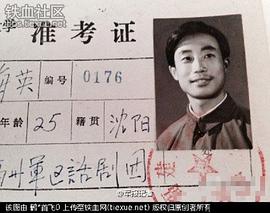 铁血社区
tiexue.net
准考证
海英 编号 0176
年龄 25 籍贯 沈阳
州軍区話剧团
该图由 鹤"首飞0 上传至铁血网(tiexue.net) 版权归原创者所有